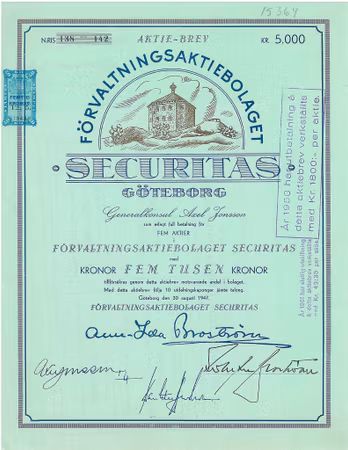 15364
AKTIE-BREV
N:RIS 138 - 142
KR. 5,000
FÖRVALTNINGSAKTIEBOLAGET
SECURITAS
GÖTEBORG
Generalkonsul Axel Jonsson
som erlagt full betalning för
FEM AKTIER
i
FÖRVALTNINGSAKTIEBOLAGET SECURITAS
med
KRONOR FEM TUSEN KRONOR
tillförsäkras genom detta aktiebrev motsvarande andel i bolaget.
Med detta aktiebrev följa 10 utdelningskuponger jämte talong.
Göteborg den 20 augusti 1947.
FÖRVALTNINGSAKTIEBOLAGET SECURITAS
Ann-Ida Broström
År 1960 har utbetalning å
detta aktiebrev verkställts
med Kr 1800:- per aktie.